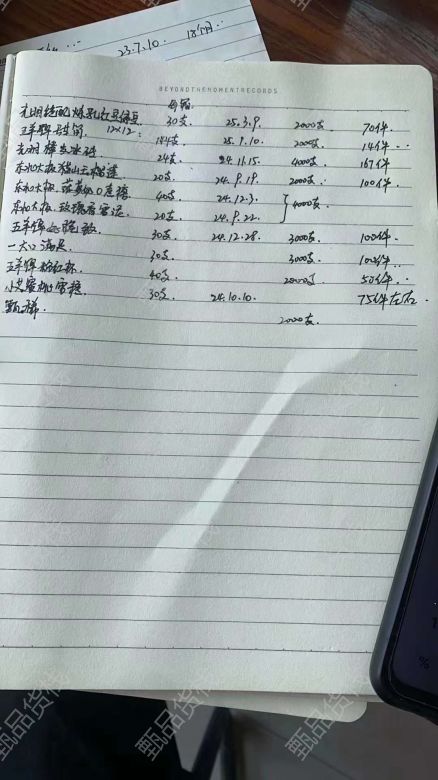 23.7.10. 18个月..
BEYONDTHEMOMENTRECORDS
每箱:
光明 炼乳红豆绿豆 30支 25.3.9. 2000支 70件.
五羊牌 甜筒 12×12: 144支 25.1.10. 2000支. 14件.
光明 冰砖 24支 24.11.15. 4000支 167件
东北大板猫山王榴莲 20支 24.9.19. 2000支. 100件.
东北大板. 40支 24.12.3. 4000支.
东北大板. 玫瑰 20支 24.9.22.
五羊牌 脆 30支 24.12.28. 3000支 100件.
一大口满足 30支. 3000支. 100件.
五羊牌 杯. 40支 2000支 50件.
小 蜜桃雪糕 30支 24.10.10. 75件左右.
甄稀. 2000支.
%
甄品货栈